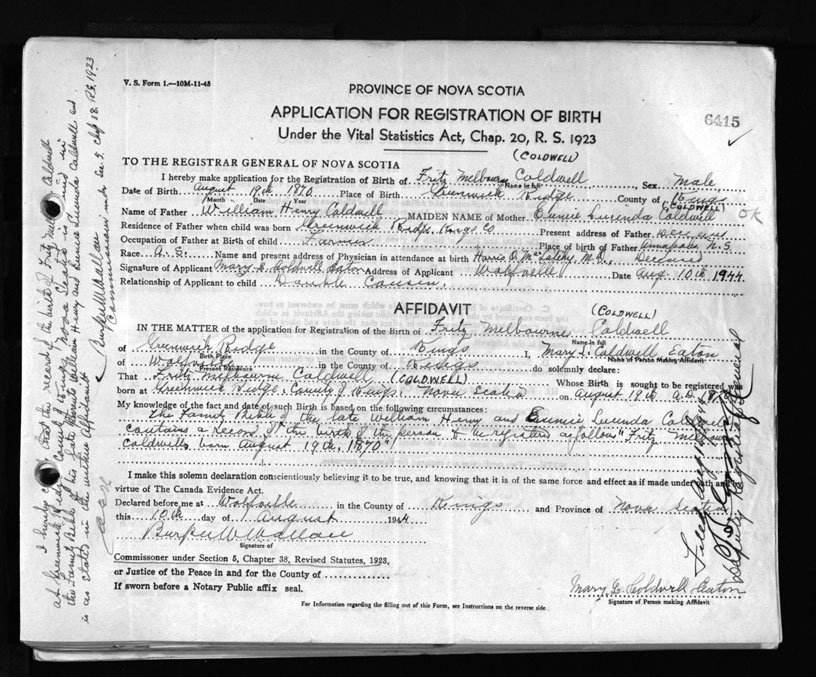 V. S. Form 1.—10M-11-43
PROVINCE OF NOVA SCOTIA
APPLICATION FOR REGISTRATION OF BIRTH
6415
Under the Vital Statistics Act, Chap. 20, R. S. 1923
(COLDWELL)
TO THE REGISTRAR GENERAL OF NOVA SCOTIA
I hereby make application for the Registration of Birth of Fritz Melbourne Coldwell Sex Male
Name in full
Date of Birth August 19th 1870 Place of Birth Greenwich Ridge County of Kings
Month Date Year
(COLDWELL)
Name of Father William Henry Coldwell MAIDEN NAME of Mother Eunice Lucinda Coldwell OK
Residence of Father when child was born Greenwich Ridge, Kings Co. Present address of Father Deceased
Occupation of Father at Birth of child Farmer Place of birth of Father N.S.
Race Name and present address of Physician in attendance at birth Harris O. M.D., Deceased
Signature of Applicant Mary L. Coldwell Eaton Address of Applicant Wolfville Date Aug. 10th 1944
Relationship of Applicant to child Double Cousin
AFFIDAVIT
(COLDWELL)
IN THE MATTER of the application for Registration of the Birth of Fritz Melbourne Coldwell
Name in full
of Greenwich Ridge in the County of Kings I, Mary L. Coldwell Eaton
Birth Place
Name of Person Making Affidavit
of Wolfville in the County of Kings do solemnly declare:
Present Residence
That Fritz Melbourne Coldwell (COLDWELL) Whose Birth is sought to be registered was
born at Greenwich Ridge, County of Kings, Nova Scotia on August 19th A.D. 1870
My knowledge of the fact and date of such Birth is based on the following circumstances:
The Family Bible of the late William Henry and Eunice Lucinda Coldwell
contains a record of the birth of the person to be registered as follows "Fritz Melbourne
Coldwell, born August 19th, 1870"
I make this solemn declaration conscientiously believing it to be true, and knowing that it is of the same force and effect as if made under oath and
virtue of The Canada Evidence Act.
Declared before me at Wolfville in the County of Kings and Province of Nova Scotia
this 10th day of August 1944
Burpee W Wallace
Signature of
Commissioner under Section 5, Chapter 38, Revised Statutes, 1923,
or Justice of the Peace in and for the County of
If sworn before a Notary Public affix seal.
Mary L. Coldwell Eaton
Signature of Person making Affidavit
For Information regarding the filling out of this Form, see Instructions on the reverse side
I hereby certify that the record of the birth of Fritz Melbourne Coldwell
at Greenwich Ridge, County of Kings, Nova Scotia is found in
the Family Bible of the late William Henry and Eunice Lucinda Coldwell and
is as stated in the within Affidavit
Burpee W Wallace
Commissioner under Sec. 5, Chap 38. R.S. 1923
Deputy Registrar General